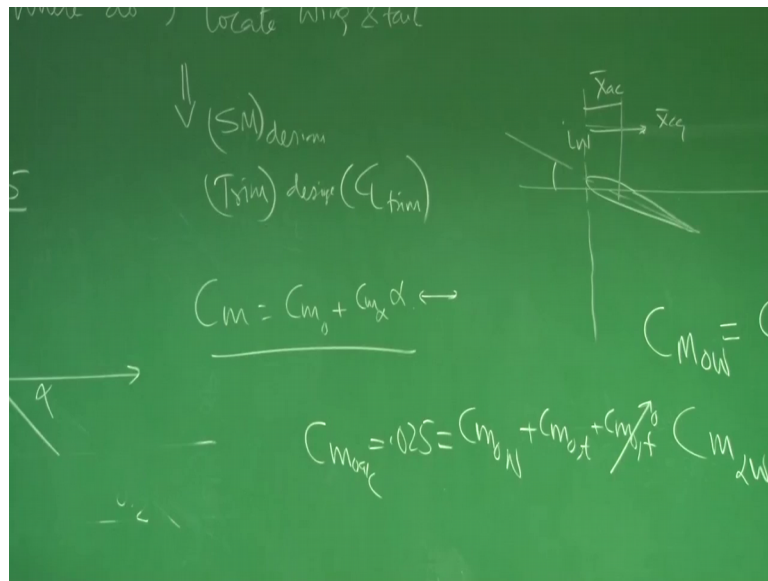 locate wing & tail
⇓ (SM)design
(Trim) design (CL trim)
x̄ac
x̄cg
Cm = Cm₀ + Cmα α ↔
CM0W = C
α
Cm0a/c = .025 = Cm0W + Cm0,t + Cm0,f 0
CmαW